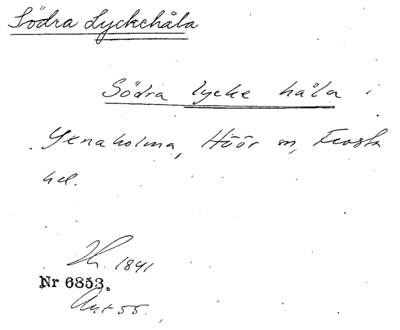 Södra Lyckehåla
Södra lycke håla i
Yxnaholma, Höör sn, Frosta
hd.
1841
Nr 6853.
Akt 55.